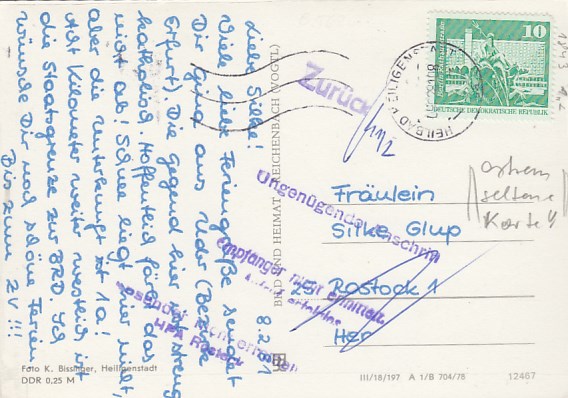 8.2.
Liebe Silke!
Viele liebe Feriengrüße sendet
Dir Gina aus Uder (Bezirk
Erfurt). Die Gegend hier ist streng
katholisch. Hoffentlich färbt das
nicht ab! Schnee liegt hier nicht,
aber die Unterkunft ist 1a!
Acht Kilometer weiter westlich ist
die Staatsgrenze zur BRD. Ich
wünsche Dir noch schöne Ferien
Bis zum ZV!!!
BILD UND HEIMAT REICHENBACH (VOGTL)
Zurück
10
DEUTSCHE DEMOKRATISCHE REPUBLIK
HEILBAD HEILIGENSTADT
extrem
seltene
Karte!
Ungenügende Anschrift
Empfänger nicht ermittelt
Absender nicht ermittelt
HPA Rostock
Fräulein
Silke Glup
25 Rostock 1
Foto K. Bissinger, Heiligenstadt
DDR 0,25 M
III/18/197 A 1/B 704/78 12467